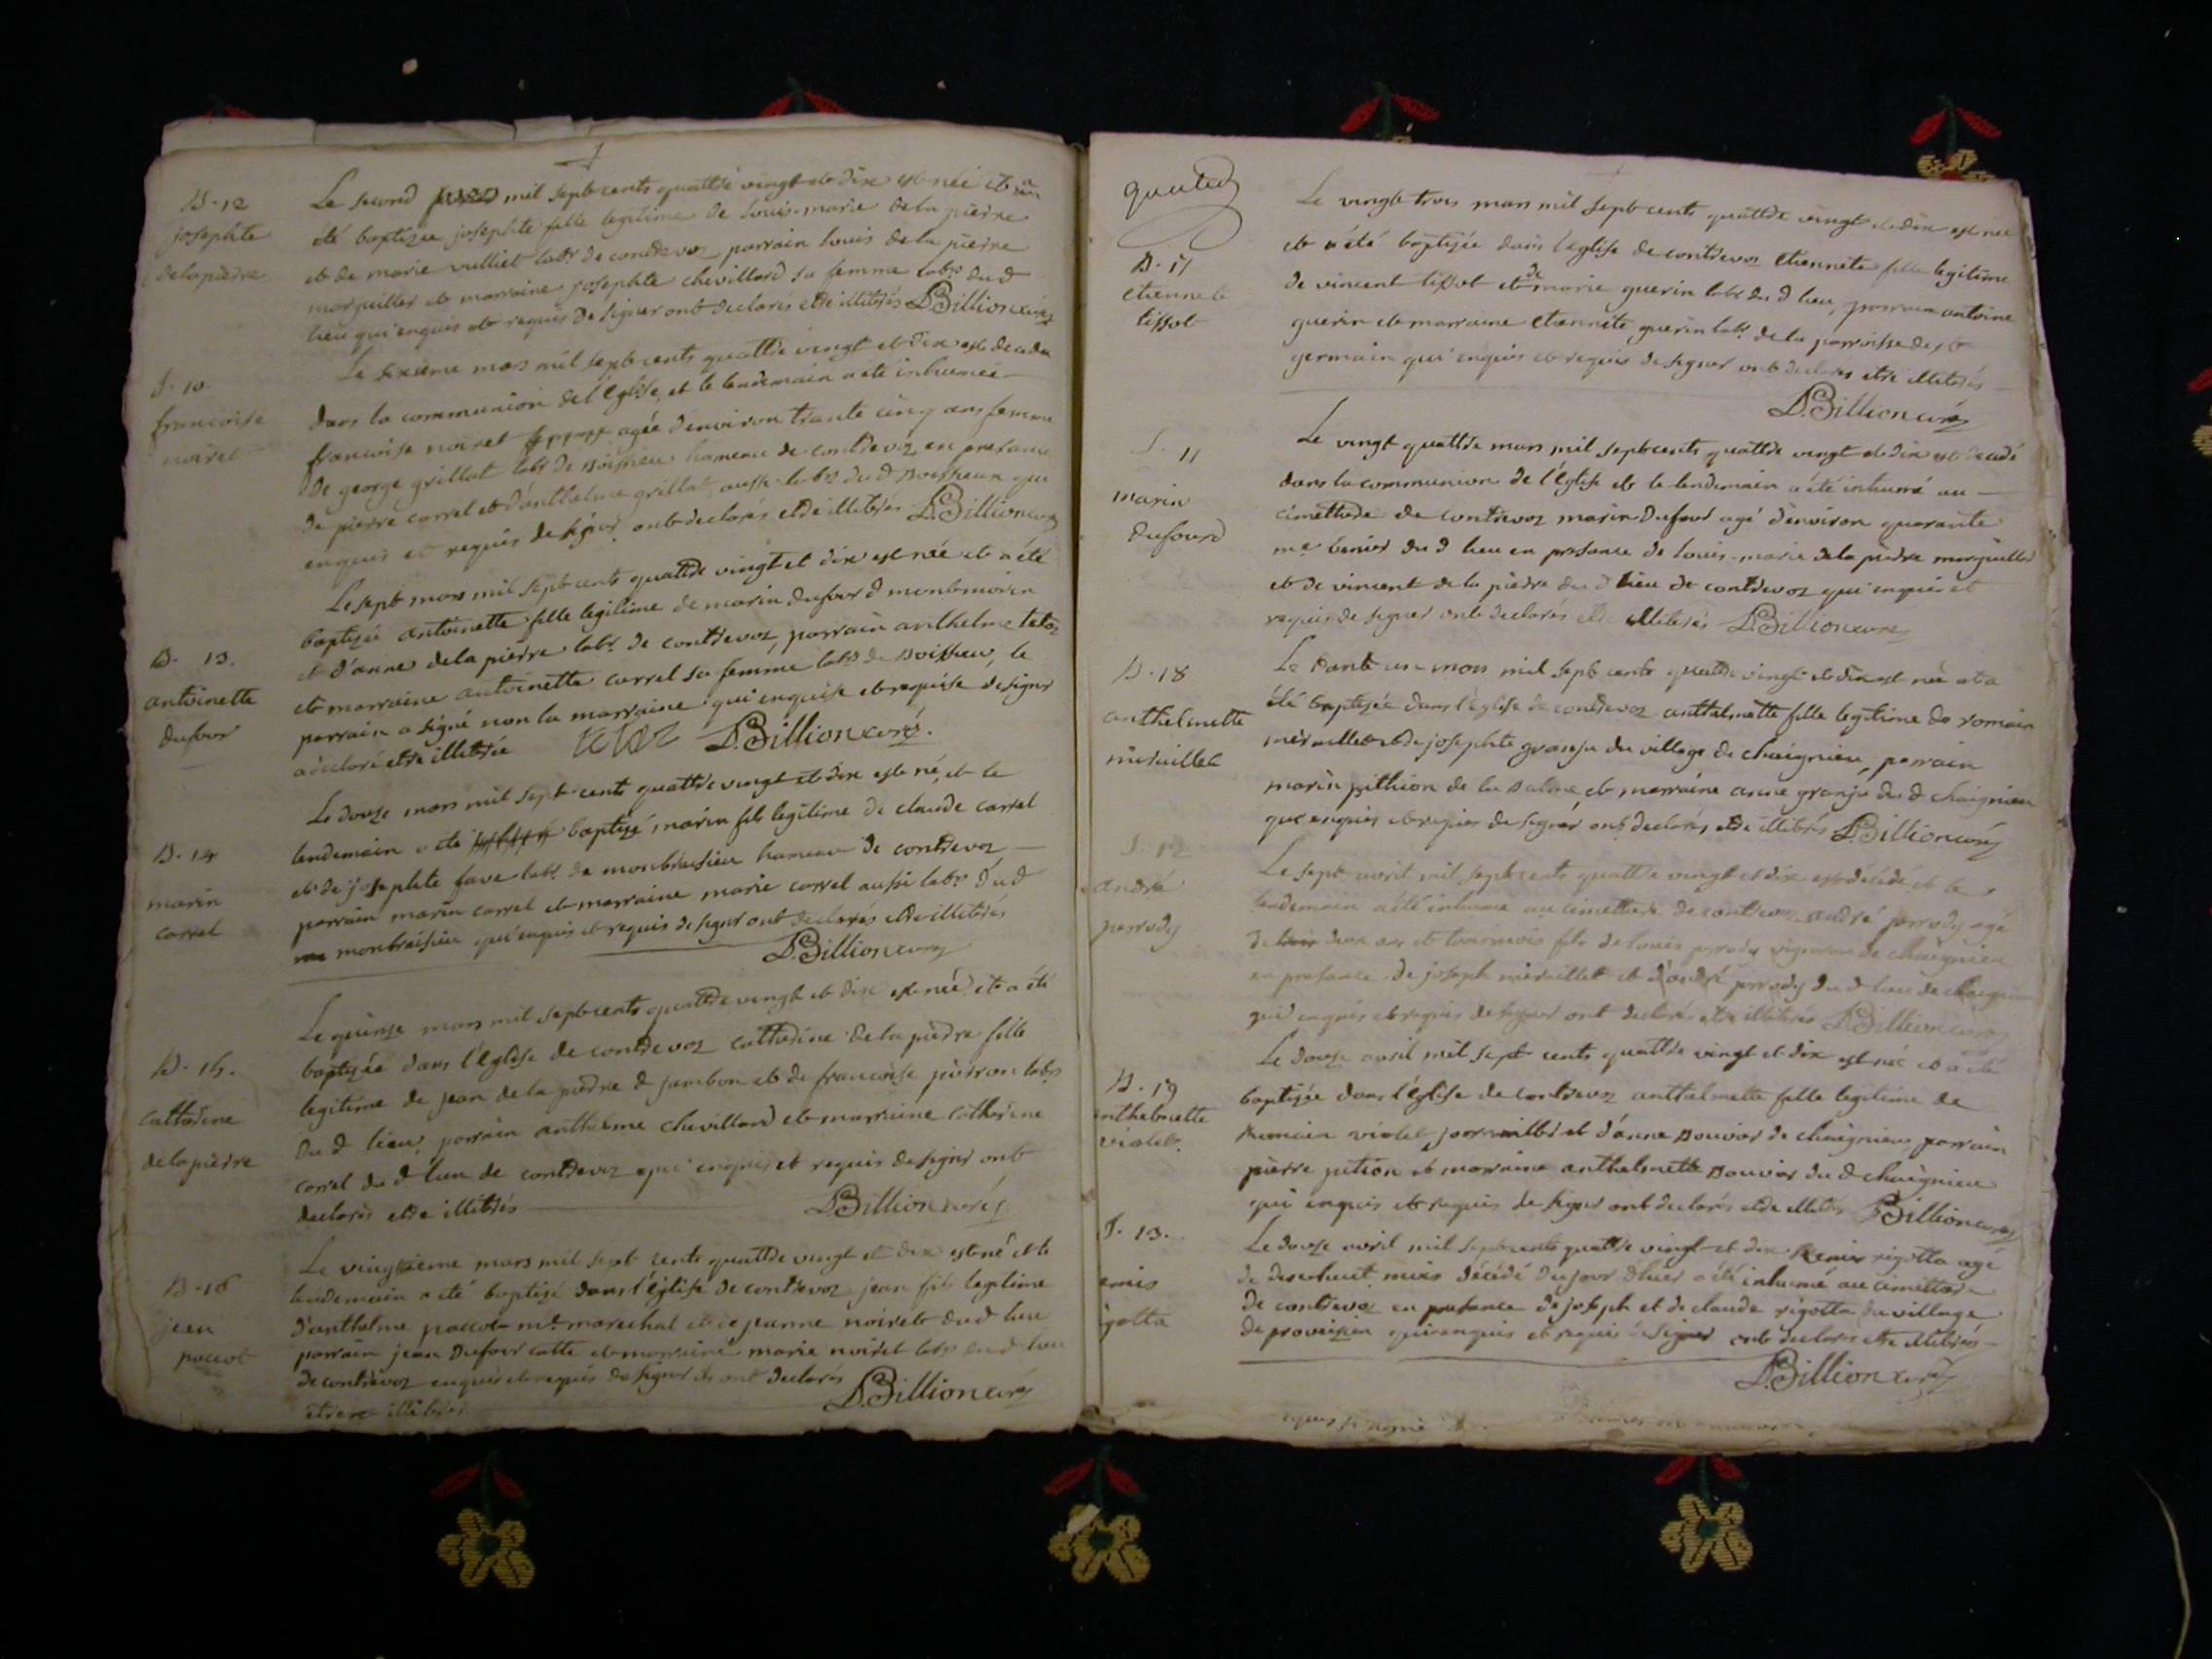 B. 12
josephte
delapierre
Le second mars mil sept cents quattre vingt et dix est née et a
été baptizée josephte fille legitime de louis-marie dela pierre
et de marie vulliet labrs de contrevoz parrain louis dela pierre
marguiller et marraine josephte chevillard sa femme labrs dud
lieu qui enquis et requis de signer ont declarés etre illitérés D.Billion curé
S. 10.
francoise
noiret
Le sixieme mars mil sept cents quattre vingt et dix est decedée
dans la communion de l'Eglise, et le lendemain a été inhumée
francoise noiret agée d'environ trante cinq ans femme
de george grillat labr de Boissieu hameau de contrevoz, en presance
de pierre carrel et d'anthelme grillat aussi labrs dud Boissieux qui
enquis et requis de signer ont declarés etre illiterés D.Billion curé
B. 13.
antoinette
dufour
Le sept mars mil sept cents quattre vingt et dix est née et a été
baptizée antoinette fille legitime de marin dufour d montmorin
et d'anne dela pierre labrs de contrevoz, parrain anthelme
et marraine antoinette carrel sa femme labrs de Boissieu, le
parrain a signé non la marraine qui enquise et requise de signer
a declaré etre illitérée D.Billion curé.
B. 14
marin
carrel
Le douze mars mil sept cents quattre vingt et dix est né, et le
lendemain a été baptizé marin fils legitime de claude carrel
et de josephte fave labrs de monbreisieu hameau de contrevoz
parrain marin carrel et marraine marie carrel aussi labrs dud
monbreisieu qui enquis et requis de signer ont declarés etre illiterés
D.Billion curé
B. 15.
catherine
delapierre
Le quinze mars mil sept cents quattre vingt et dix est née et a été
baptizée dans l'Eglise de contrevoz catherine dela pierre fille
legitime de jean de la pierre d jambon et de francoise pierron labrs
dud lieu, parrain anthelme chevillard et marraine catherine
carrel dud lieu de contrevoz qui enquis et requis de signer ont
declarés etre illiterés D.Billion curé
B. 16
jean
paccot
Le vingtieme mars mil sept cents quattre vingt et dix est né et le
lendemain a été baptizé dans l'église de contrevoz jean fils legitime
d'anthelme paccot md marechal et de jeanne noiret dud lieu
parrain jean dufour et marraine marie noiret labrs dud lieu
de contrevoz enquis et requis de signer ils ont declarés
etre illiterés D.Billion curé
B. 17
etiennete
tissot
Le vingt trois mars mil sept cents quattre vingt et dix est née
et a été baptizée dans l'église de contrevoz etiennete fille legitime
de vincent tissot et de marie guerin labrs dud lieu, parrain antoine
guerin et marraine etiennete guerin labrs de la parroisse de st
germain qui enquis et requis de signer ont declarés etre illiterés
D.Billion curé
S. 11
marin
dufour
Le vingt quattre mars mil sept cents quattre vingt et dix est decedé
dans la communion de l'église et le lendemain a été inhumé au
cimettiere de contrevoz marin dufour agé d'environ quarante
dud lieu en presance de louis-marie dela pierre marguiller
et de vincent de la pierre dud lieu de contrevoz qui enquis et
requis de signer ont declarés etre illiterés D.Billion curé
B. 18
anthelmette
mieraillet
Le trante un mars mil sept cents quattre vingt et dix est née et a
été baptizée dans l'église de contrevoz anthelmette fille legitime de romain
mieraillet et de josephte granju du village de chaignieu, parrain
marin pithion de la balme, et marraine anne granju dud chaignieu
qui enquis et requis de signer ont declarés etre illitérés D.Billion curé
S. 12
andré
perrody
Le sept avril mil sept cents quattre vingt et dix est décédé et le
lendemain a été inhumé au cimettiere de contrevoz andré perrody agé
de deux ans et fils de louis perrody vigneron de chaignieu
en presance de joseph mieraillet et d'andré perrody dud lieu de chaignieu
qui enquis et requis de signer ont declarés etre illiterés D.Billion curé
B. 19
anthelmette
violet.
Le douze avril mil sept cents quattre vingt et dix est née et a été
baptizée dans l'église de contrevoz anthelmette fille legitime de
Romain violet et d'anne Bouvier de chaignieu, parrain
pierre pition et marraine anthelmette Bouvier dud chaignieu
qui enquis et requis de signer ont declarés etre illiterés D.Billion curé
S. 13.
remis
rigotta
Le douze avril mil sept cents quattre vingt et dix Remis rigotta agé
de deux mois décédé du jour d'hier a été inhumé au cimettiere
de contrevoz en presance de joseph et de claude rigotta du village
de provisieu qui enquis et requis de signer ont declarés etre illiterés
D.Billion curé